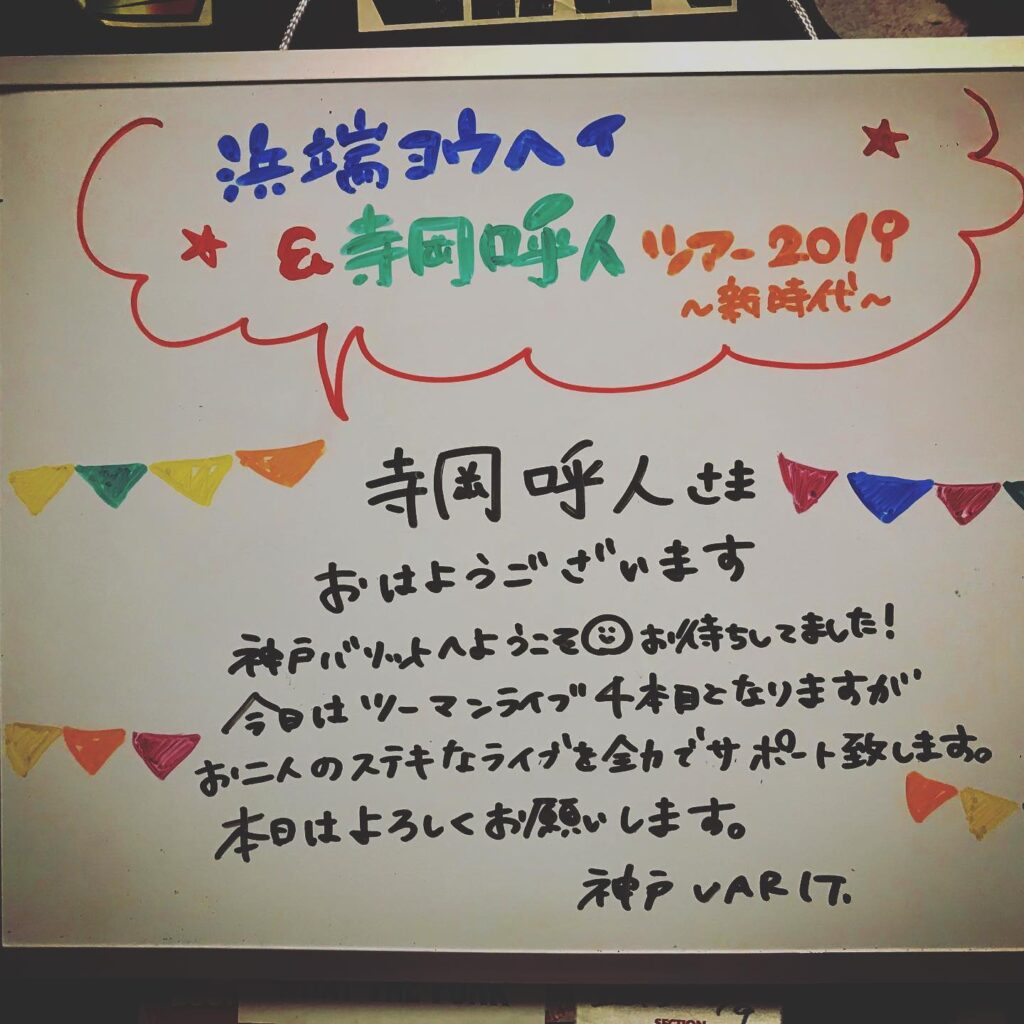 浜端ヨウヘイ
&寺岡呼人 ツアー2019
～新時代～
寺岡呼人さま
おはようございます
神戸バリットへようこそ お待ちしてました!
今日はツーマンライブ4本目となりますが
お二人のステキなライブを全力でサポート致します。
本日はよろしくお願いします。
神戸VARIT.
SECTION